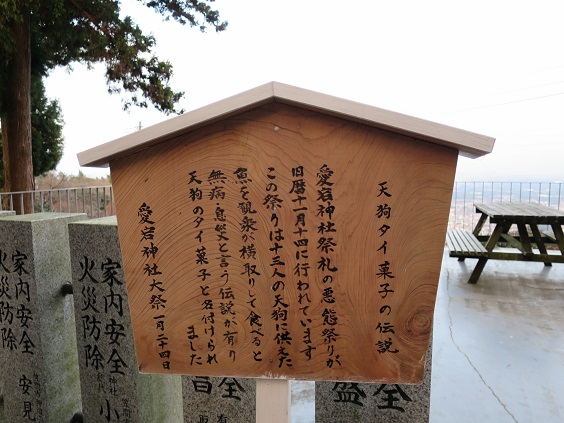 天狗タイ菓子の伝説
愛宕神社祭礼の悪態祭りが、
旧暦十一月十四に行われています
この祭りは十三人の天狗に供えた
魚を観衆が横取りして食べると
無病・息災と言う伝説が有り
天狗のタイ菓子と名付けられ
ました
愛宕神社大祭 一月二十四日
家内安全
火災防除
家内安全
火災防除
安見
小